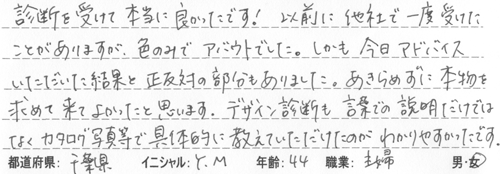 診断を受けて本当に良かったです！ 以前に他社で一度受けた
ことがありますが、色のみでアバウトでした。しかも今日アドバイス
いただいた結果と正反対の部分もありました。あきらめずに本物を
求めて来てよかったと思います。デザイン診断も言葉での説明だけでは
なくカタログ写真等で具体的に教えていただけたのがわかりやすかったです。
都道府県: 千葉県 イニシャル: Y.M 年齢: 44 職業: 主婦 男・女